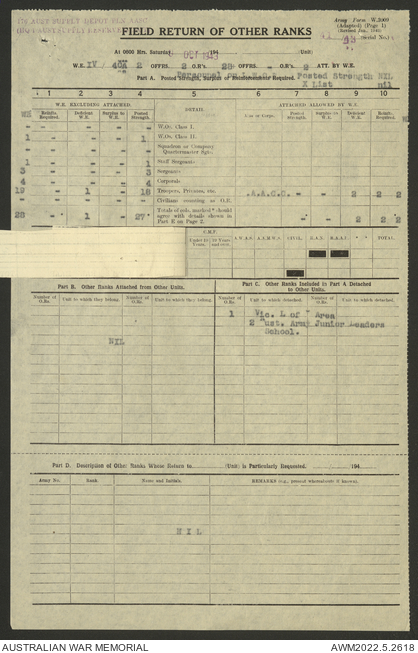 Army Form W.3009
(Adapted) (Page 1)
FIELD RETURN OF OTHER RANKS
At 0600 Hrs. Saturday, OCT 194 (Unit)
W.E. IV / 2 OFFRS. 2 O.R's. 28 OFFRS. - O.R's. 2 ATT. BY W.E.
Part A. Personnel on Posted Strength NIL
Posted Strength, Surplus or Reinforcements Required.
X List nil
W.E. EXCLUDING ATTACHED. ATTACHED ALLOWED BY W.E.
1 2 3 4 5 6 7 8 9 10
W.E. Reinfts. Required. Deficient W.E. Surplus to W.E. Posted Strength DETAIL Unit or Corps. Posted Strength surplus to W.E. Deficient W.E. Reinfts. Required. W.E.
- - - - - W.Os. Class I.
1 - - - 1 W.Os. Class II.
Squadron or Company Quartermaster Sgt.
1 - - - 1 Staff Sergeants
3 - - - 3 Sergeants
4 - - - 4 Corporals
19 - 1 - 18 Troopers, Privates, etc. A.A.C.C. - - 2 2 2
Civilians counting as O.R.
28 - 1 - 27 Totals of cols. marked * should agree with details shown in Part E on Page 2. - - 2 2 2
C.M.F.
Under 19 Years 19 Years and over. A.W.A.S. A.A.M.W.S. CIVIL. TOTAL
Part B. Other Ranks Attached from Other Units.
Part C. Other Ranks Included in Part A Detached to Other Units.
Number of O.Rs. Unit to which they belong. Number of O.Rs. Unit to which they belong. Number of O.Rs. Unit to which they belong. Number of O.Rs. Unit to which they belong.
NIL
1 Vic. L of " Area
2 ust. Army Junior Leaders
School.
Part D. Description of Other Ranks Whose Return to (Unit) is Particularly Requested. 194
Army No. Rank Name and Initials. REMARKS (e.g., present whereabouts if known).
N I L
AUSTRALIAN WAR MEMORIAL
AWM2022.5.2618